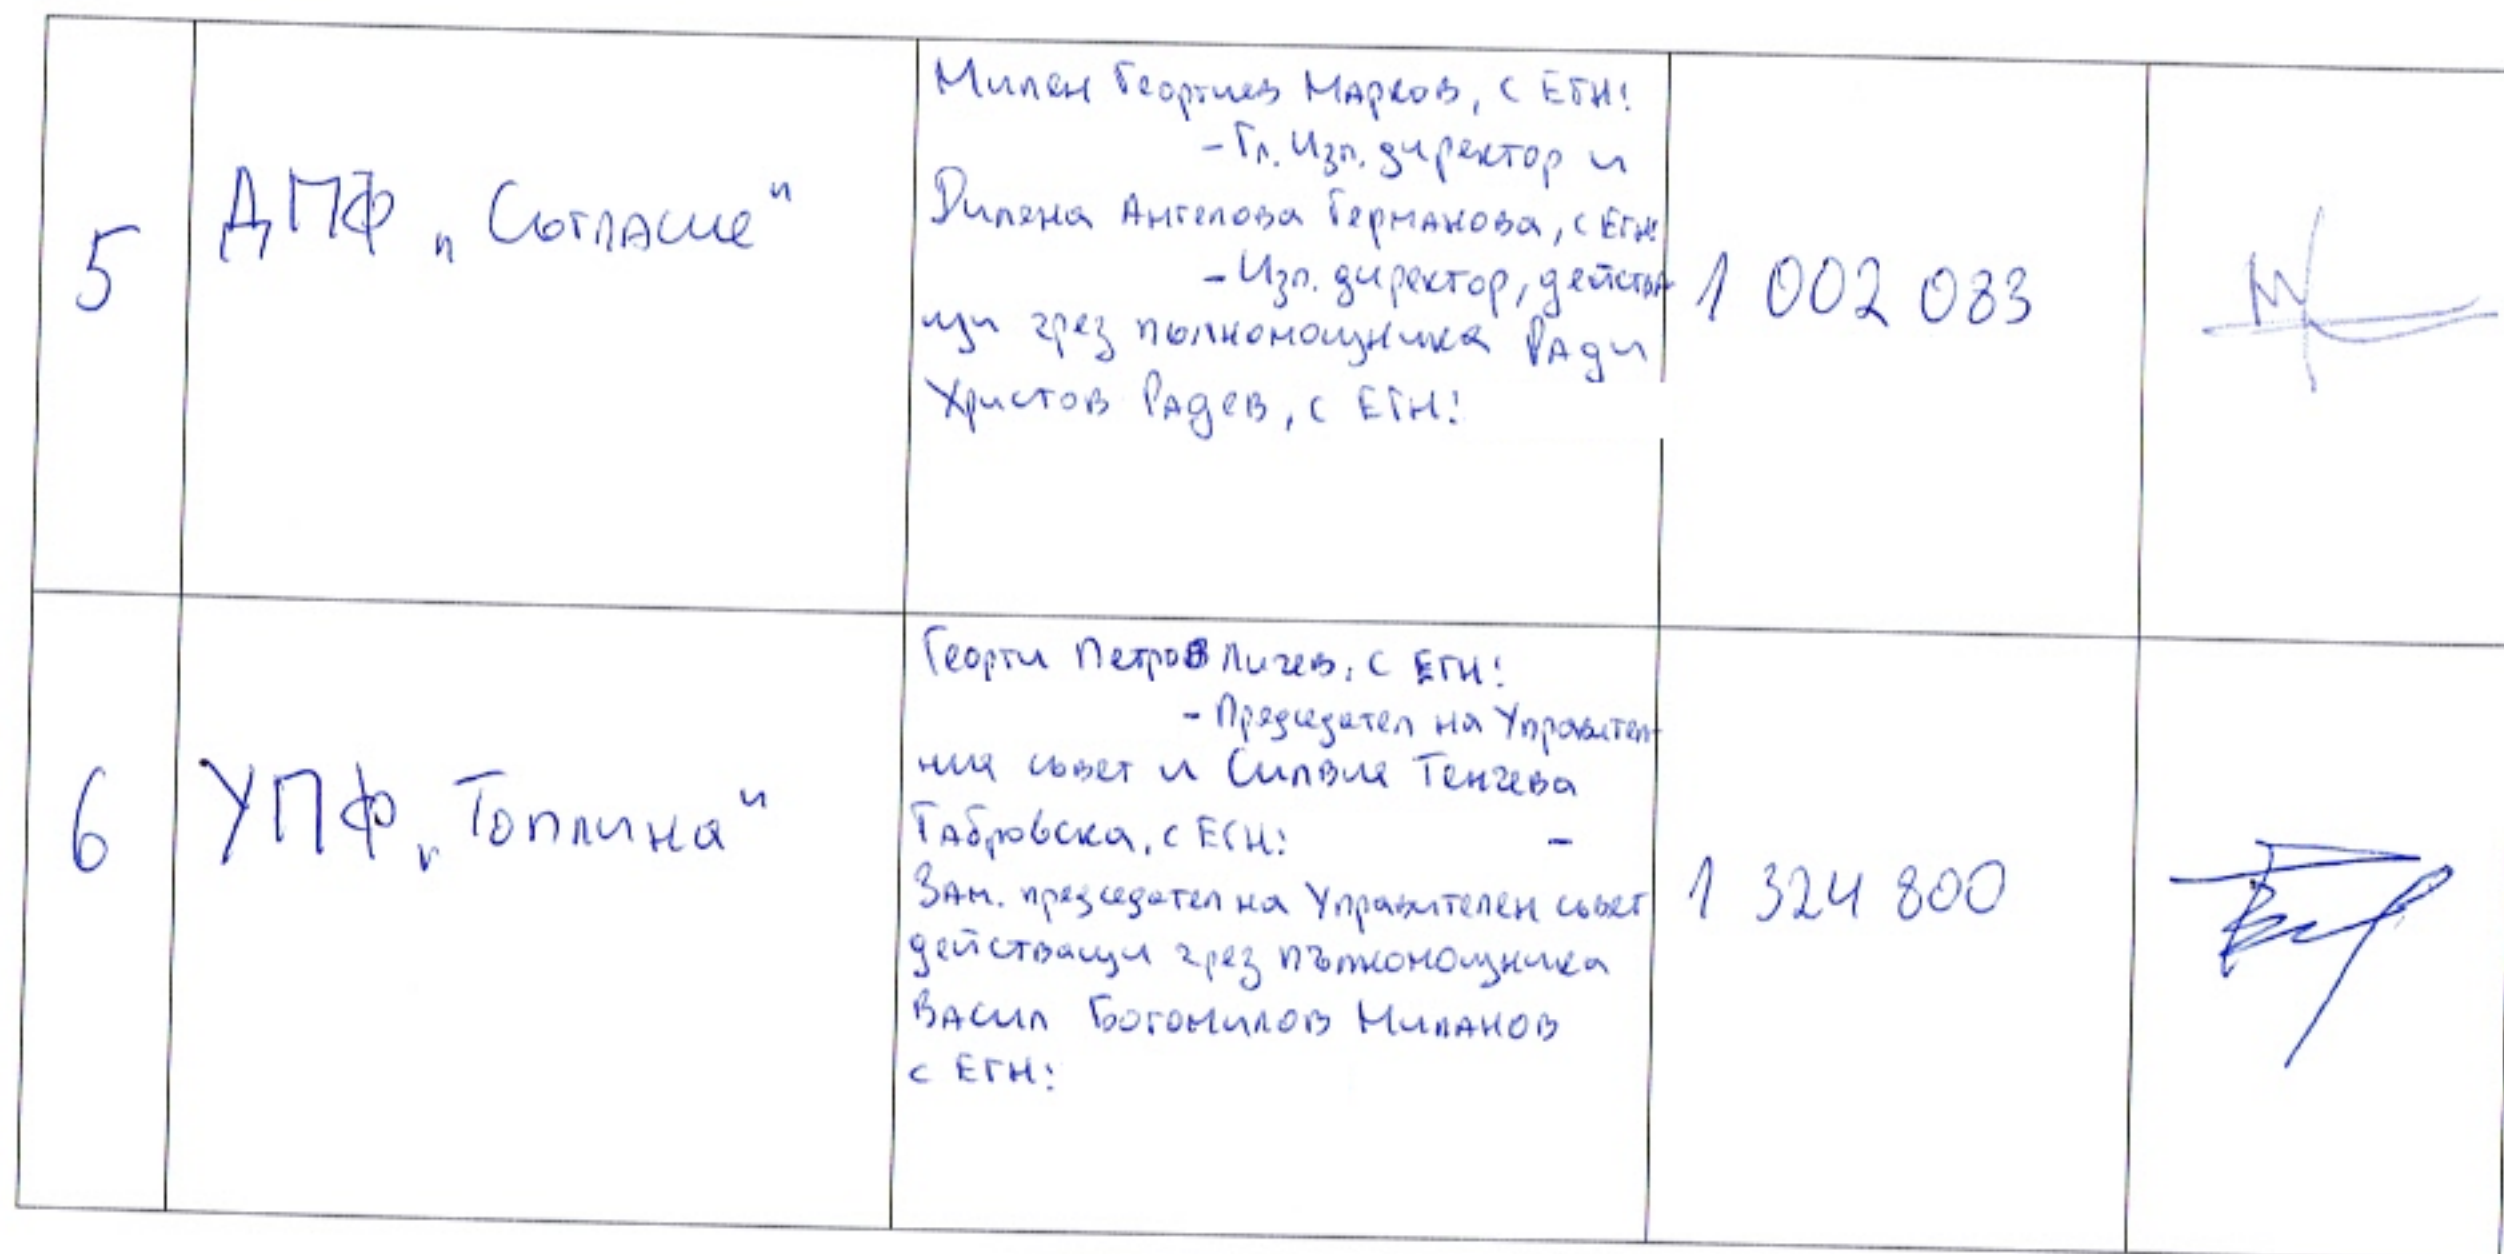 5
ДПФ „Съгласие"
Милен Георгиев Марков, с ЕГН:
- Гл. Изп. директор и
Дилена Ангелова Германова, с ЕГН:
- Изп. директор, действа
щи чрез пълномощника Ради
Христов Радев, с ЕГН:
1 002 083
6
УПФ „Топлина"
Георги Петров Личев, с ЕГН:
- Председател на Управител-
ния съвет и Силвия Тенчева
Габровска, с ЕГН: -
Зам. председател на Управителен съвет
действащи чрез пълномощника
Васил Богомилов Миланов
с ЕГН:
1 324 800